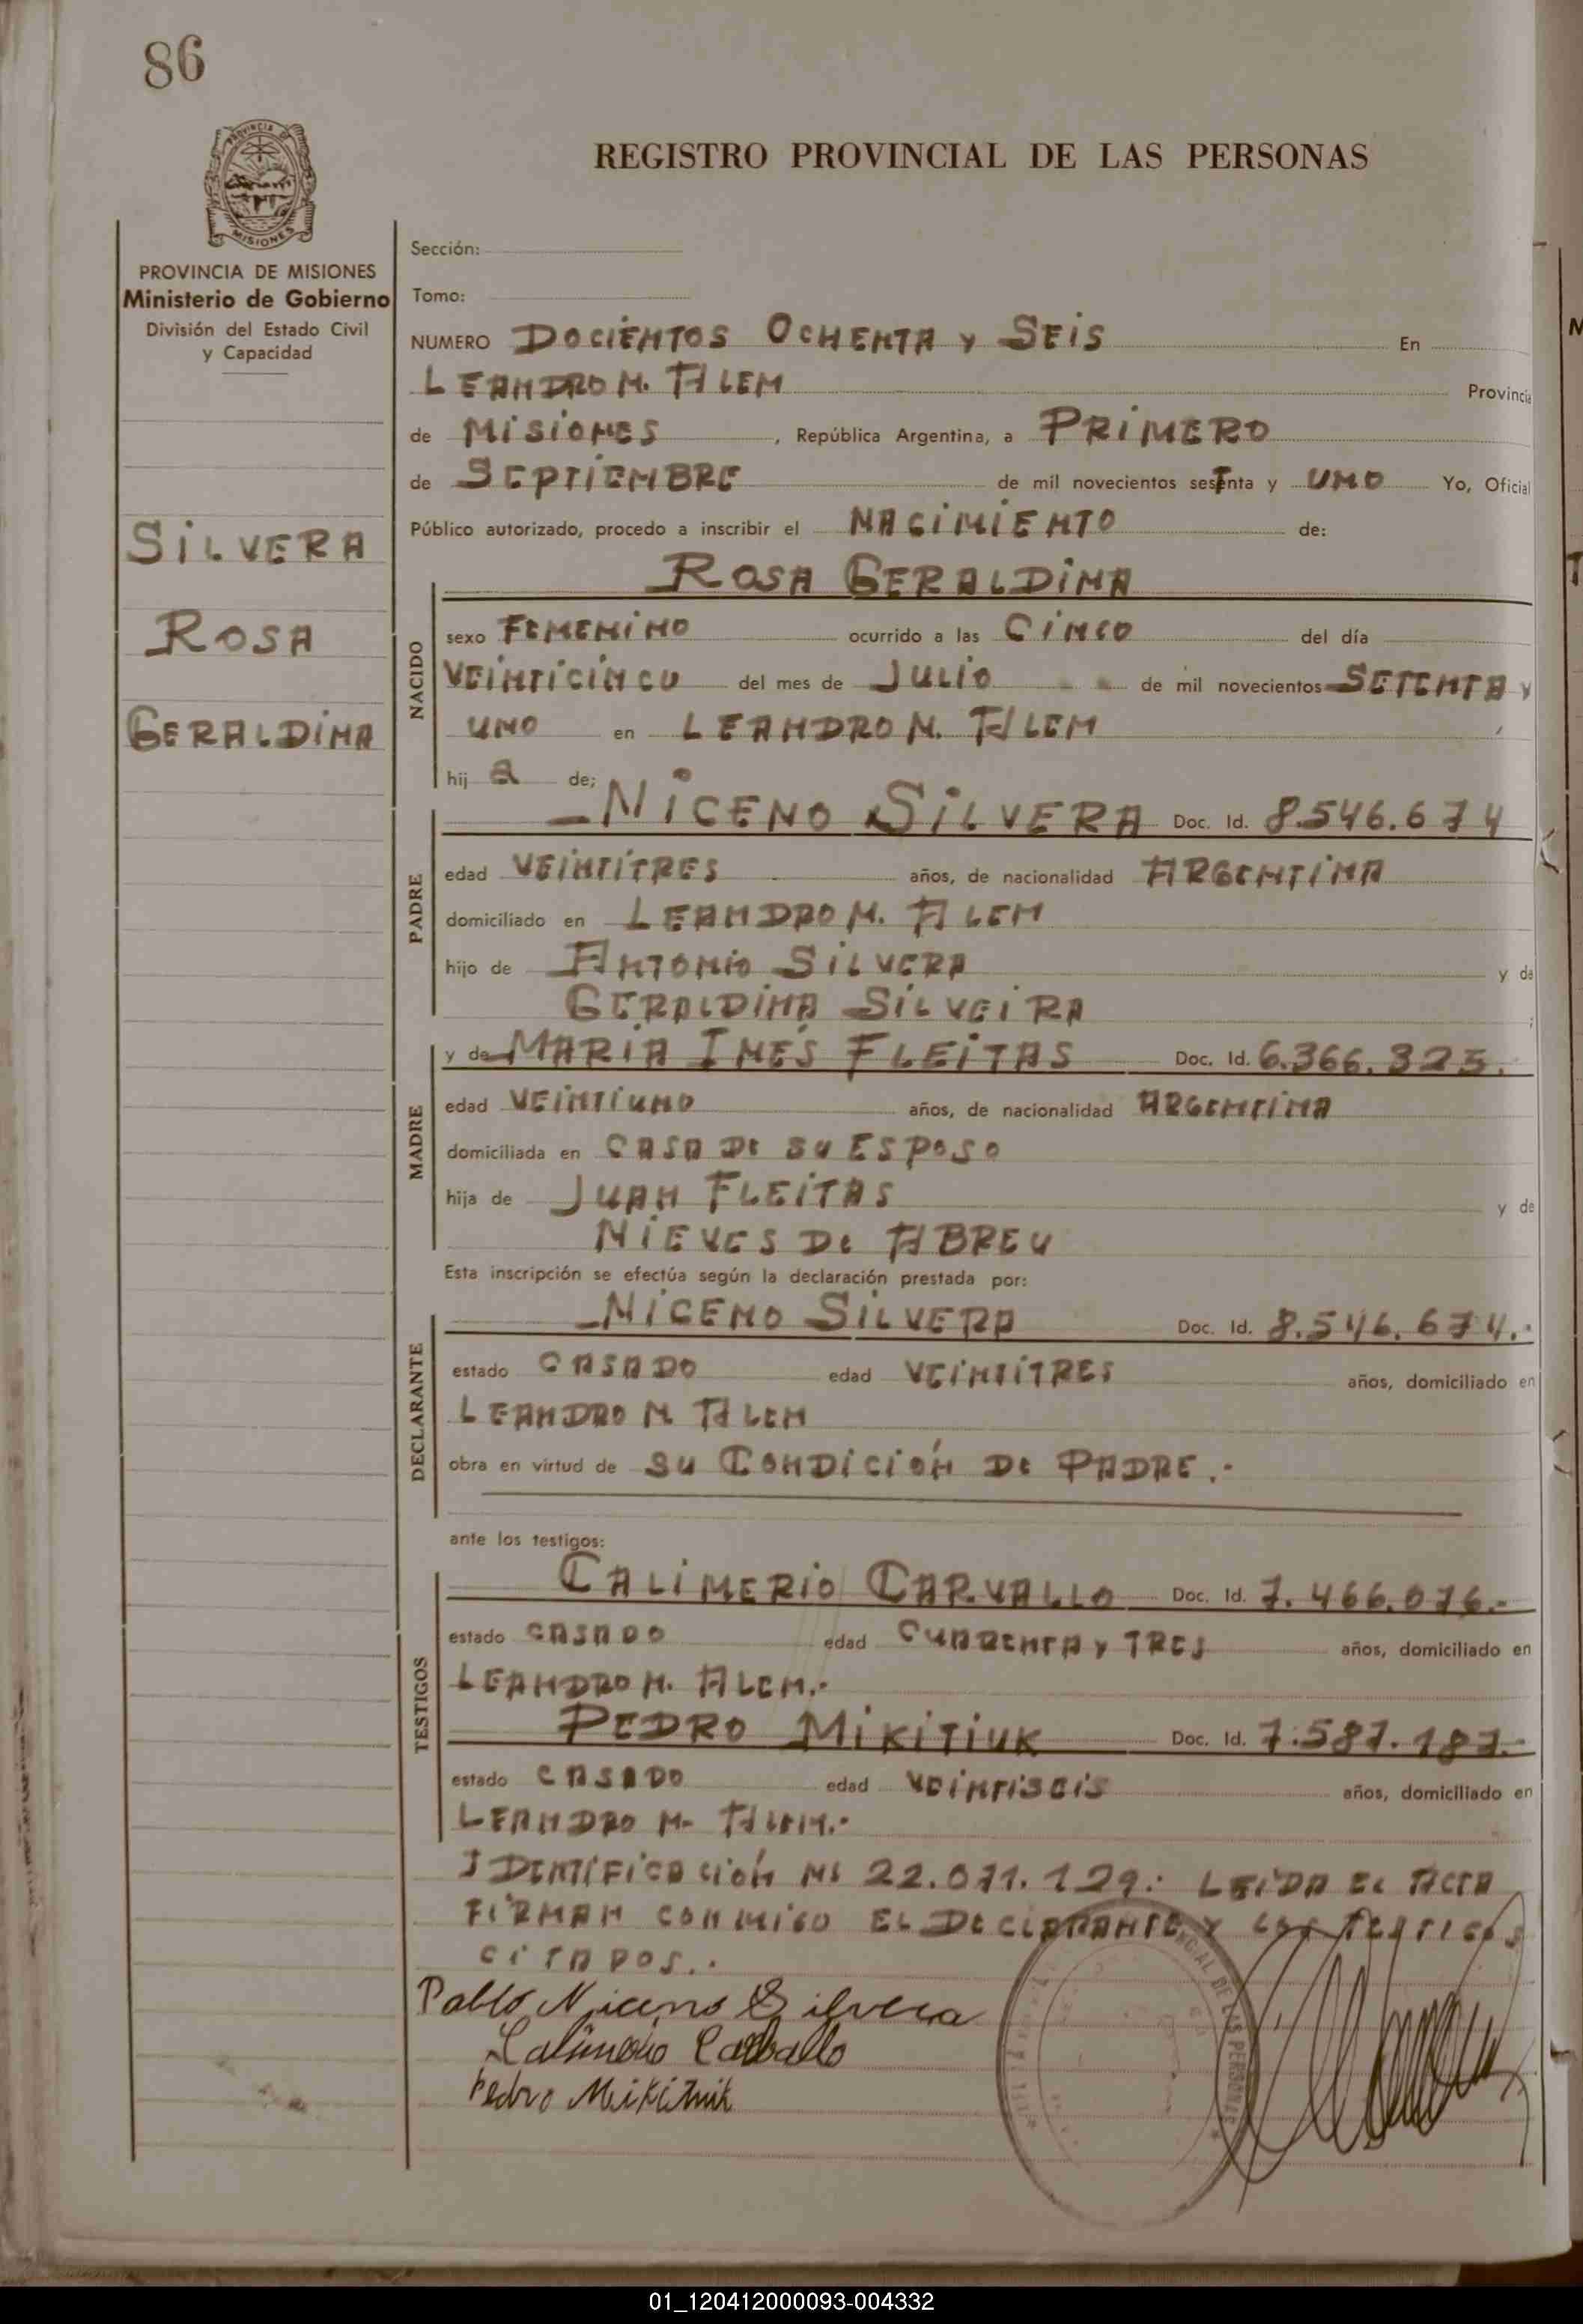 86
PROVINCIA DE
MISIONES
REGISTRO PROVINCIAL DE LAS PERSONAS
PROVINCIA DE MISIONES
Ministerio de Gobierno
División del Estado Civil
y Capacidad
SILVERA
ROSA
GERALDINA
Sección:
Tomo:
NUMERO DOCIENTOS OCHENTA y SEIS En
LEANDRO N. ALEM Provincia
de MISIONES, República Argentina, a PRIMERO
de SEPTIEMBRE de mil novecientos setenta y UNO Yo, Oficial
Público autorizado, procedo a inscribir el NACIMIENTO de:
ROSA GERALDINA
NACIDO
sexo FEMENINO ocurrido a las CINCO del día
VEINTICINCO del mes de JULIO de mil novecientos SETENTA y
UNO en LEANDRO N. ALEM
hij a de;
PADRE
NICENO SILVERA Doc. Id. 8.546.674
edad VEINTITRES años, de nacionalidad ARGENTINA
domiciliado en LEANDRO N. ALEM
hijo de ANTONIO SILVERA y de
GERALDINA SILVEIRA ;
MADRE
y de MARIA INÉS FLEITAS Doc. Id. 6.366.325.
edad VEINTIUNO años, de nacionalidad ARGENTINA
domiciliada en CASA DE SU ESPOSO
hija de JUAN FLEITAS y de
NIEVES DE ABREU
Esta inscripción se efectúa según la declaración prestada por:
DECLARANTE
NICENO SILVERA Doc. Id. 8.546.674.-
estado CASADO edad VEINTITRES años, domiciliado en
LEANDRO N. ALEM
obra en virtud de SU CONDICIÓN DE PADRE.-
ante los testigos:
TESTIGOS
CALIMERIO CARVALLO Doc. Id. 7.466.076.-
estado CASADO edad CUARENTA y TRES años, domiciliado en
LEANDRO N. ALEM.-
PEDRO MIKITIUK Doc. Id. 7.587.187.-
estado CASADO edad VEINTISEIS años, domiciliado en
LEANDRO N. ALEM.-
IDENTIFICACIÓN Nº 22.071.129.- LEIDA EL ACTA
FIRMAN CONMIGO EL DECLARANTE y LOS TESTIGOS
CITADOS.-
Pablo Niceno Silvera
Calimerio Carballo
Pedro Mikitiuk
01_120412000093-004332